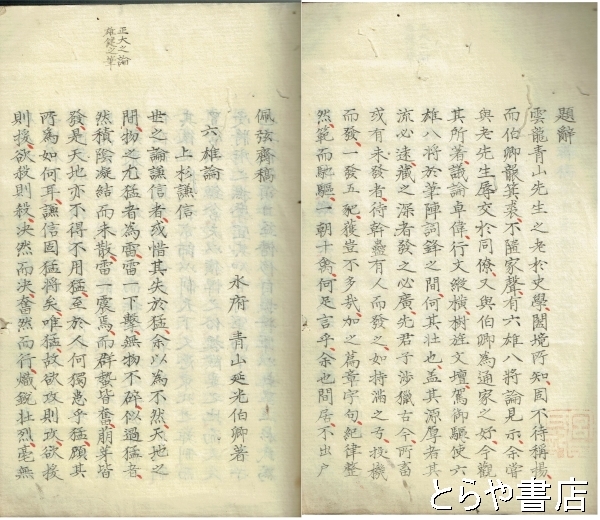 題辭
雲龍青山先生之老於史學闔境所知固不待稱揚
而伯卿襲箕裘不隕家聲有六雄八將論見示余嘗
與老先生辱交於同僚又與伯卿為通家之好今觀
其所著議論卓偉行文縱横樹旌文壇駕御驅使六
雄八將於筆陣詞鋒之間何其壮也盖其源厚者其
流必遠藏之深者發之必廣先君子涉獵古今所畜
或有未發者待幹蠱有人而發之如持満之弓投機
而發一發五豝獲豈不多哉加之篇章字句紀律整
然範而馳驅一朝十禽何足言乎余也間居不出戸
正大之論
雄健之筆
佩弦齋稿
六雄論
水府 青山延光伯卿著
上杉謙信
世之論謙信者或惜其失於猛余以為不然天地之
間物之尤猛者為雷雷一下撃無物不碎似過猛者
然積陰凝結而未散雷一震焉而群蟄皆奮崩芽皆
發是天地亦不得不用猛至於人何獨患乎猛顧其
所為如何耳謙信固猛將矣唯猛故欲攻則攻欲援
則援欲殺則殺决然而决奮然而行熾鋭壯烈毫無
とらや書店